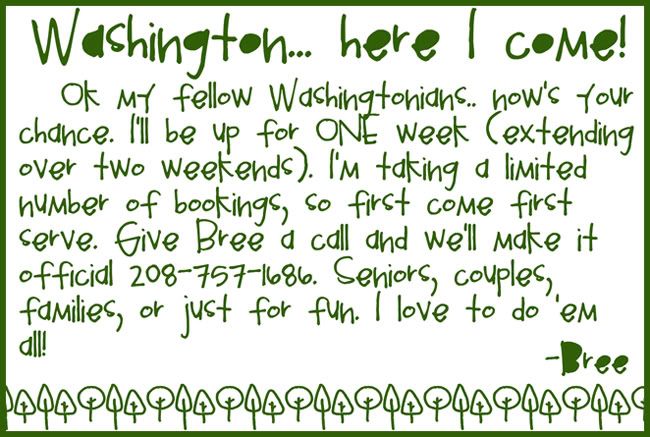 Washington... here I come!
Ok my fellow Washingtonians.. now's your
chance. I'll be up for ONE week (extending
over two weekends). I'm taking a limited
number of bookings, so first come first
serve. Give Bree a call and we'll make it
official 208-757-1686. Seniors, couples,
families, or just for fun. I love to do 'em
all!
-Bree